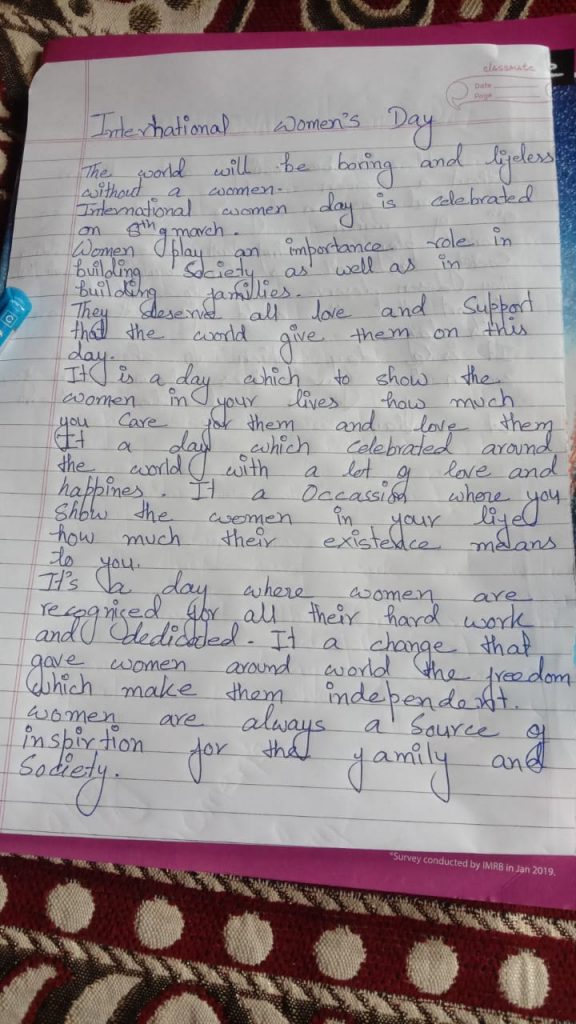 classmate
Date
Page
International Women's Day
The world will be boring and lifeless
without a women.
International women day is celebrated
on 8th of march.
Women play an importance role in
building Society as well as in
building families.
They deserve all love and Support
that the world give them on this
day.
It is a day which to show the
women in your lives how much
you Care for them and love them
It a day which Celebrated around
the world with a lot of love and
happines. It a Occassion where you
Show the women in your life
how much their existence means
to you.
It's a day where women are
recogniced for all their hard work
and dedicated. It a change that
gave women around world the freedom
which make them independent.
women are always a Source of
inspirtion for the family and
Society.
*Survey conducted by IMRB in Jan 2019.